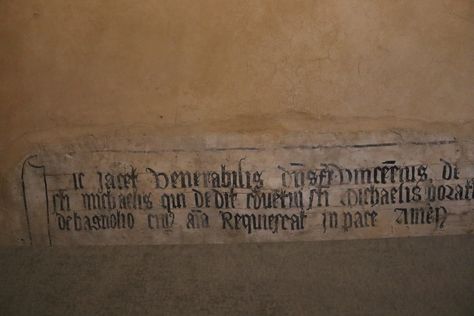 ic iacet Venerabilis dn̄s Vincētius de
sti michaelis qui dedit cōvētui sti Michaelis
de basnolio cui9 aīa Requiescat in pace Amēn